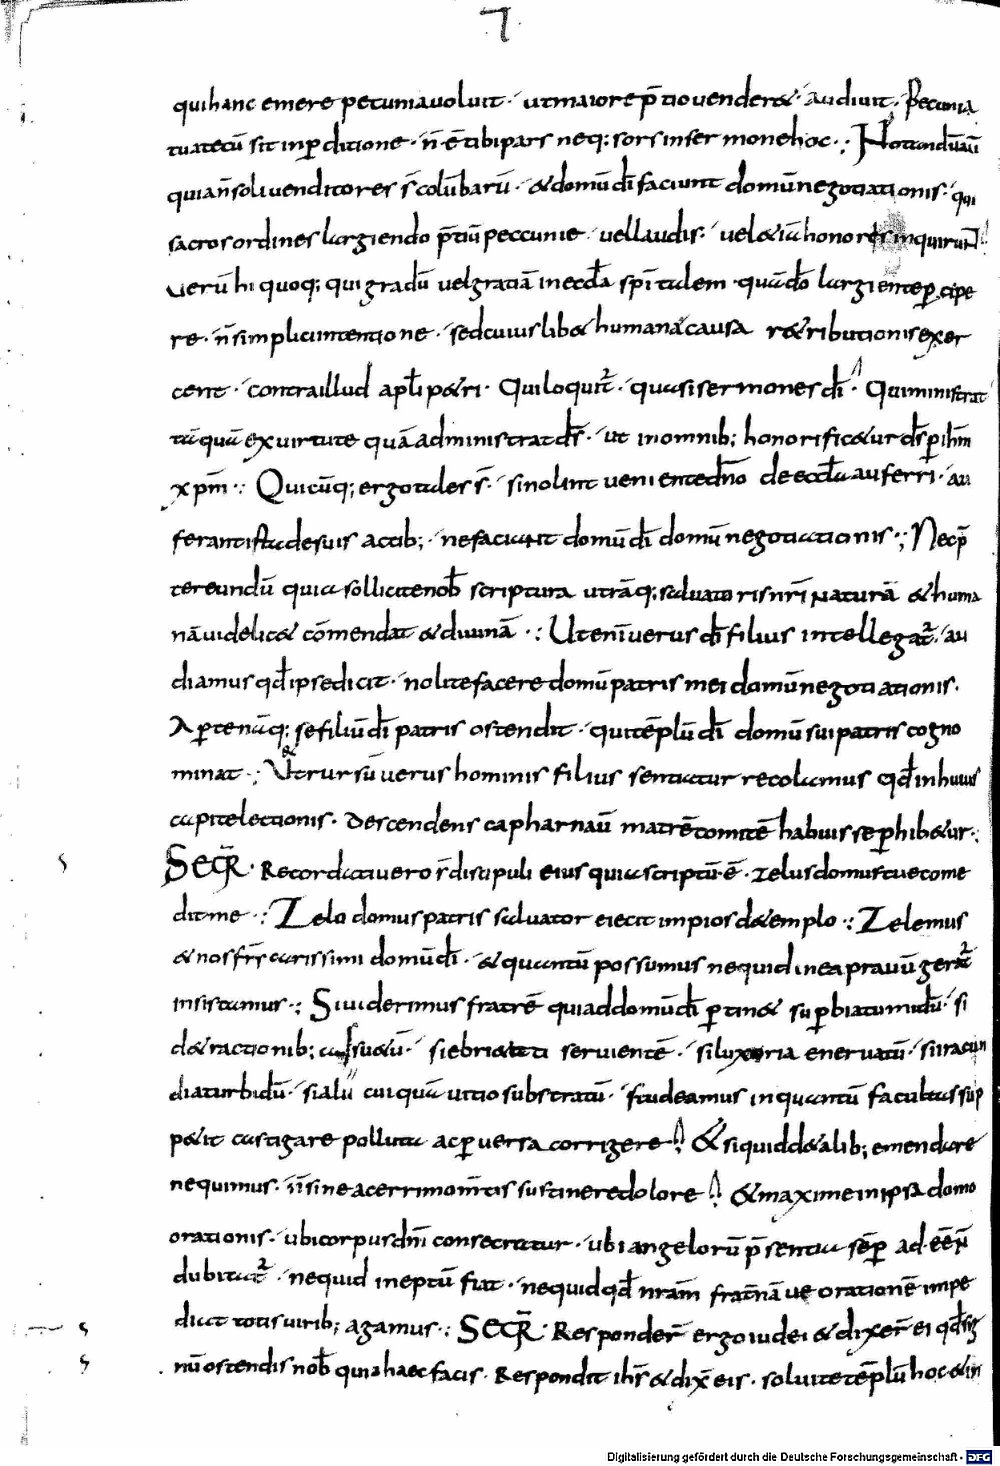 7
qui hanc emere pecunia voluit · ut maiore p̄tio venderet · audiuit · Pecunia
tua tecū sit in p̱ditione · n̄ ē tibi pars neq; sors in sermone hoc · ; Notandū aū
quia n̄ soli venditores s̄ colūbarū · & domū dī faciunt domū negotiationis · qui
sacros ordines largiendo p̄tiū peccunie · vel laudis · vel etiā honores inquirun̄
Verū hi quoq; qui gradū vel gratiā in eccła sp̄italem · quā dō largiente p̱cipe
re · n̄ simplici intentione · sed cuiuslibet humana causa retributionis exer
cent · contra illud apłi petri · Qui loquit̄ · quasi sermones dī · Qui ministrat
tāquā ex virtute quā administrat d̄s · ut in omnib; honorificetur d̄s p̱ ih̄m
xp̄m · : Quicūq; ergo tales s̄ · si nolunt veniente dn̄o de eccła auferri · au
ferant ista de suis actib; · ne faciant domū dī domū negotiationis · ; Nec p̄
tereundū quia sollicite nob̄ scriptura utrāq; saluatoris nr̄i naturā & huma
nā videlicet cōmendat & diuinā · : Ut enī verus dī filius intellegat̄ · au
diamus qđ ipse dicit · nolite facere domū patris mei domū negotiationis ·
Ap̱te nāq; se filiū dī patris ostendit · qui tēplū dī domū sui patris cogno
minat · ; Et rursū verus hominis filius sentiatur recolamus qđ in huius
capite lectionis · descendens capharnaū matrē comitē habuisse p̱hibetur · ;
Seqr̄ · Recordati vero s̄ discipuli eius quia scriptū ē · zelus domus tue come
dit me · : Zelo domus patris saluator eiecit impios de templo · : Zelemus
& nos fr̄s carissimi domū dī · & quantū possumus ne quid in ea prauū gerat̄
insistamus · : Si viderimus fratrē qui ad domū dī p̱tinet sup̱bia tumidū · si
detractionib; assuetū · si ebrietati serviente · si luxoria eneruatū · si iracun
dia turbidū · si alii cuiquā vitio substratū · studeamus in quantū facultas sup
petit castigare polluta ac p̱versa corrigere · & siquid de talib; emendare
nequimus · n̄ sine acerrimo m̄tis sustinere dolore · & maxime in ipsa domo
orationis · ubi corpus dn̄i consecratur · ubi angelorū p̄sentia sēp̱ adēē n̄
dubitat̄ · ne quid ineptū fiat · ne quid qđ nrām frat̄nā ve orationē impe
diat totis virib; agamus · : Seqr̄ · Responder̄ ergo iudei & dixer̄ ei qđ sig
nū ostendis nob̄ quia haec facis · Respondit ih̄s & dix̄ eis · solvite tēplū hoc & in
Digitalisierung gefördert durch die Deutsche Forschungsgemeinschaft - DFG